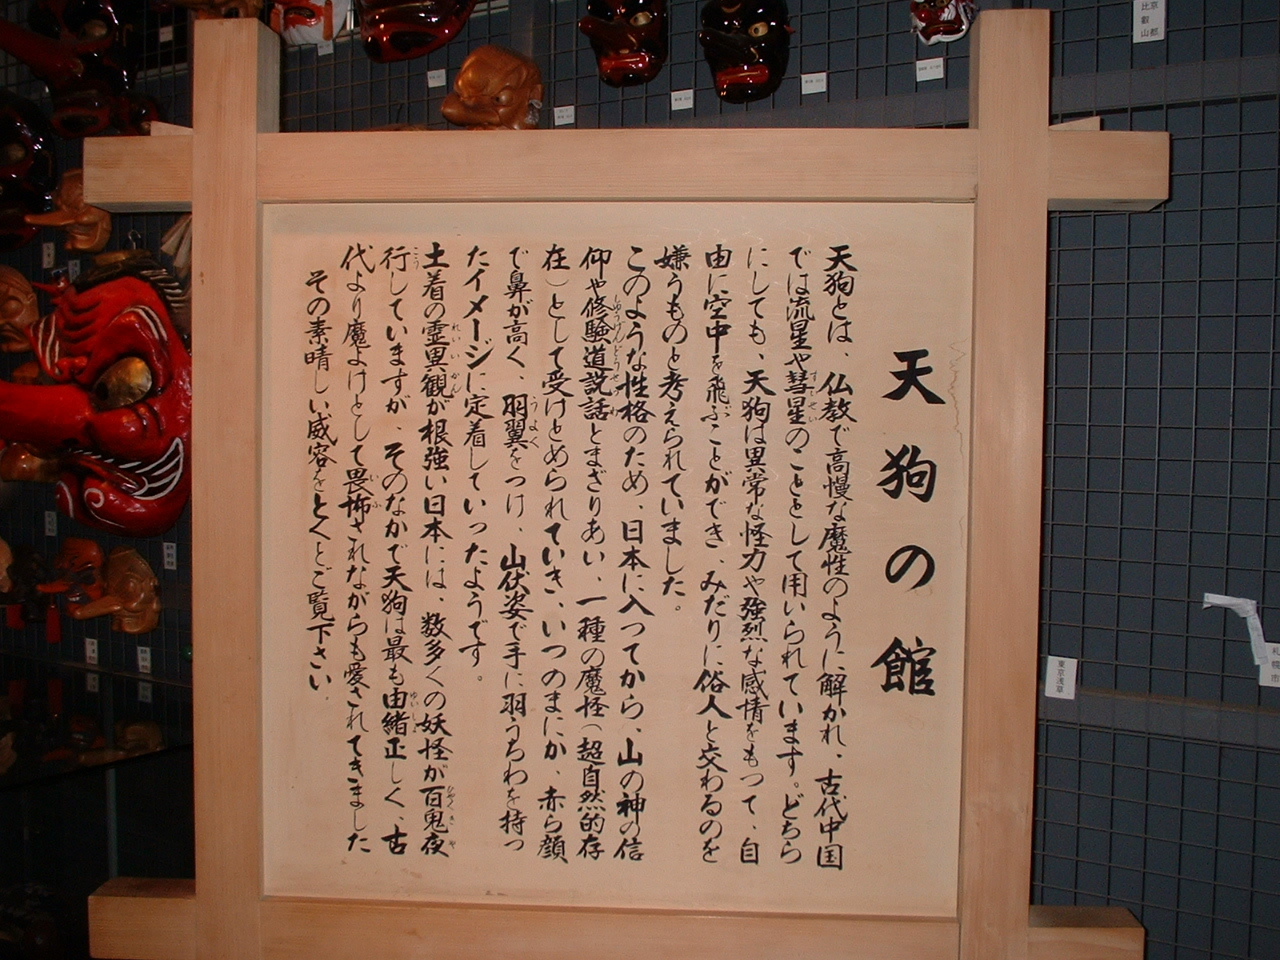 天狗の館
天狗とは、仏教で高慢な魔性のように解かれ、古代中国
では流星や彗星のこととして用いられています。どちら
にしても、天狗は異常な怪力や強烈な感情をもって、自
由に空中を飛ぶことができ、みだりに俗人と交わるのを
嫌うものと考えられていました。
このような性格のため、日本に入ってから、山の神の信
仰や修験道説話とまざりあい、一種の魔怪(超自然的存
在)として受けとめられていき、いつのまにか、赤ら顔
で鼻が高く、羽翼をつけ、山伏姿で手に羽うちわを持っ
たイメージに定着していったようです。
土着の霊異観が根強い日本には、数多くの妖怪が百鬼夜
行していますが、そのなかで天狗は最も由緒正しく、古
代より魔よけとして畏怖されながらも愛されてきました
その素晴しい威容をとくとご覧下さい.
京都
比叡山
東京浅草